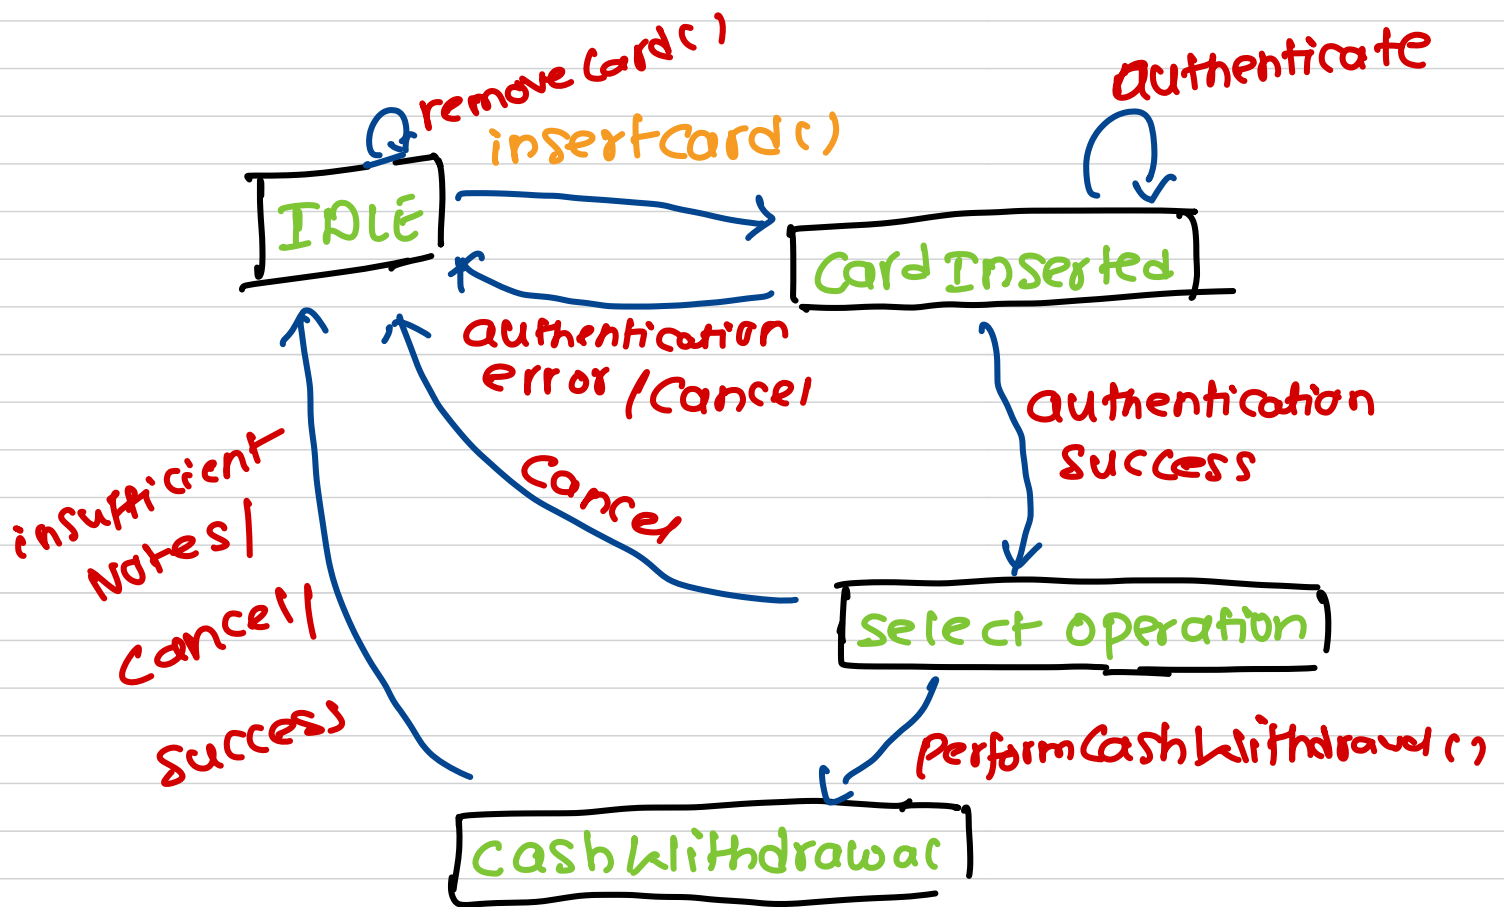 removeCard()
authenticate
insertCard()
IDLE
Card Inserted
authentication
error /Cancel
authentication
success
Cancel
insufficient
Notes/
Cancel/
success
select operation
performCashWithdrawal()
CashWithdrawal